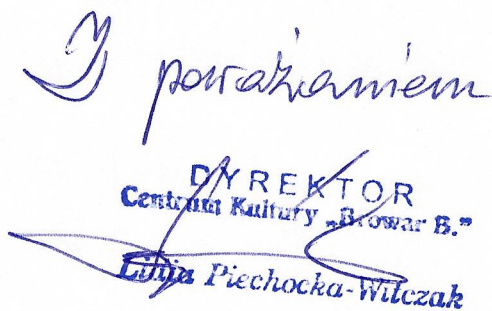 Z poważaniem
DYREKTOR
Centrum Kultury „Browar B.”
Lidia Piechocka-Witczak